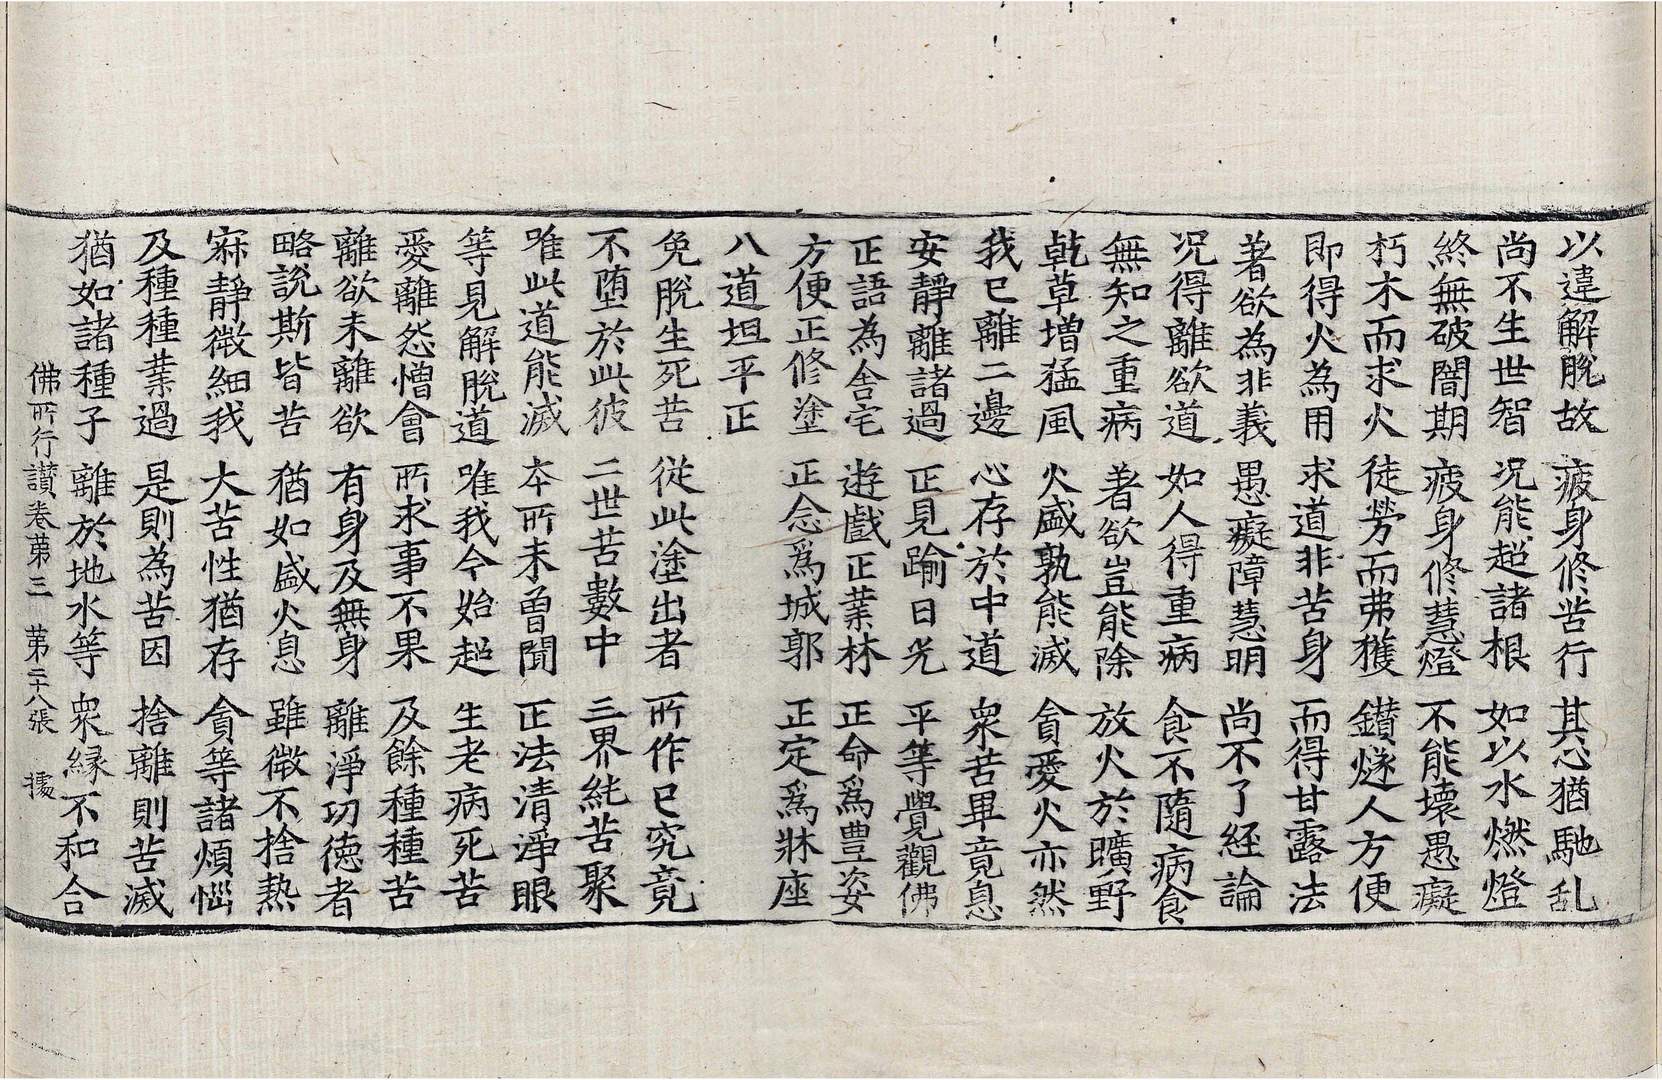 以違解脫故 疲身修苦行 其心猶馳乱
尚不生世智 况能超諸根 如以水燃燈
終無破闇期 疲身修慧燈 不能壞愚癡
朽木而求火 徒勞而弗獲 鑚燧人方便
即得火為用 求道非苦身 而得甘露法
著欲為非義 愚癡障慧明 尚不了経論
况得離欲道 如人得重病 食不隨病食
無知之重病 著欲豈能除 放火於曠野
乹草增猛風 火盛孰能滅 貪愛火亦然
我已離二邊 心存於中道 衆苦畢竟息
安靜離諸過 正見踰日光 平等覺觀佛
正語為舍宅 遊戲正業林 正命爲豊姿
方便正修塗 正念爲城郭 正定爲牀座
八道坦平正
免脫生死苦 從此塗出者 所作已究竟
不墮於此彼 二世苦數中 三界純苦聚
唯此道能滅 本所未曾聞 正法清淨眼
等見解脫道 唯我今始超 生老病死苦
愛離怨憎會 所求事不果 及餘種種苦
離欲未離欲 有身及無身 離淨功德者
略說斯皆苦 猶如盛火息 雖微不捨熱
寂靜微細我 大苦性猶存 貪等諸煩惱
及種種業過 是則為苦因 捨離則苦滅
猶如諸種子 離於地水等 衆緣不和合
佛所行讚卷第三 第二十八張 據